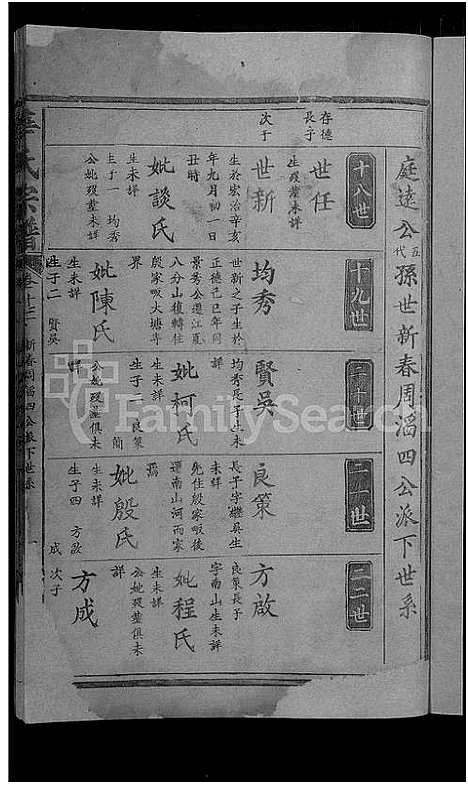 庭遠公五代孫世新春周滔四公派下世系
十八世
十九世
二十世
二一世
二二世
存德
長子
世任
生歿葬未詳
次子
世新
生於宏治辛亥
年九月初一日
丑時
妣談氏
生未詳
生子一 均秀
公妣歿葬未詳
均秀
世新之子生於
正德己巳年同
景秀公遷江夏
八分山復轉住
殷家畈大塘
界
妣陳氏
生未詳
生子二 賢吳
賢吳
均秀長子生未
詳
妣柯氏
生未詳
生子二 良策
簡
公妣歿葬俱未
詳
良策
長子字繼吳生
未詳
先住殷家畈後
遷南山河而家
焉
妣殷氏
生未詳
生子四 方啟
成
方啟
良策長子
字南山生未詳
妣程氏
生未詳
公妣歿葬俱未
詳
次子
方成
氏宗譜
新春周滔四公派下世系
FamilySearch